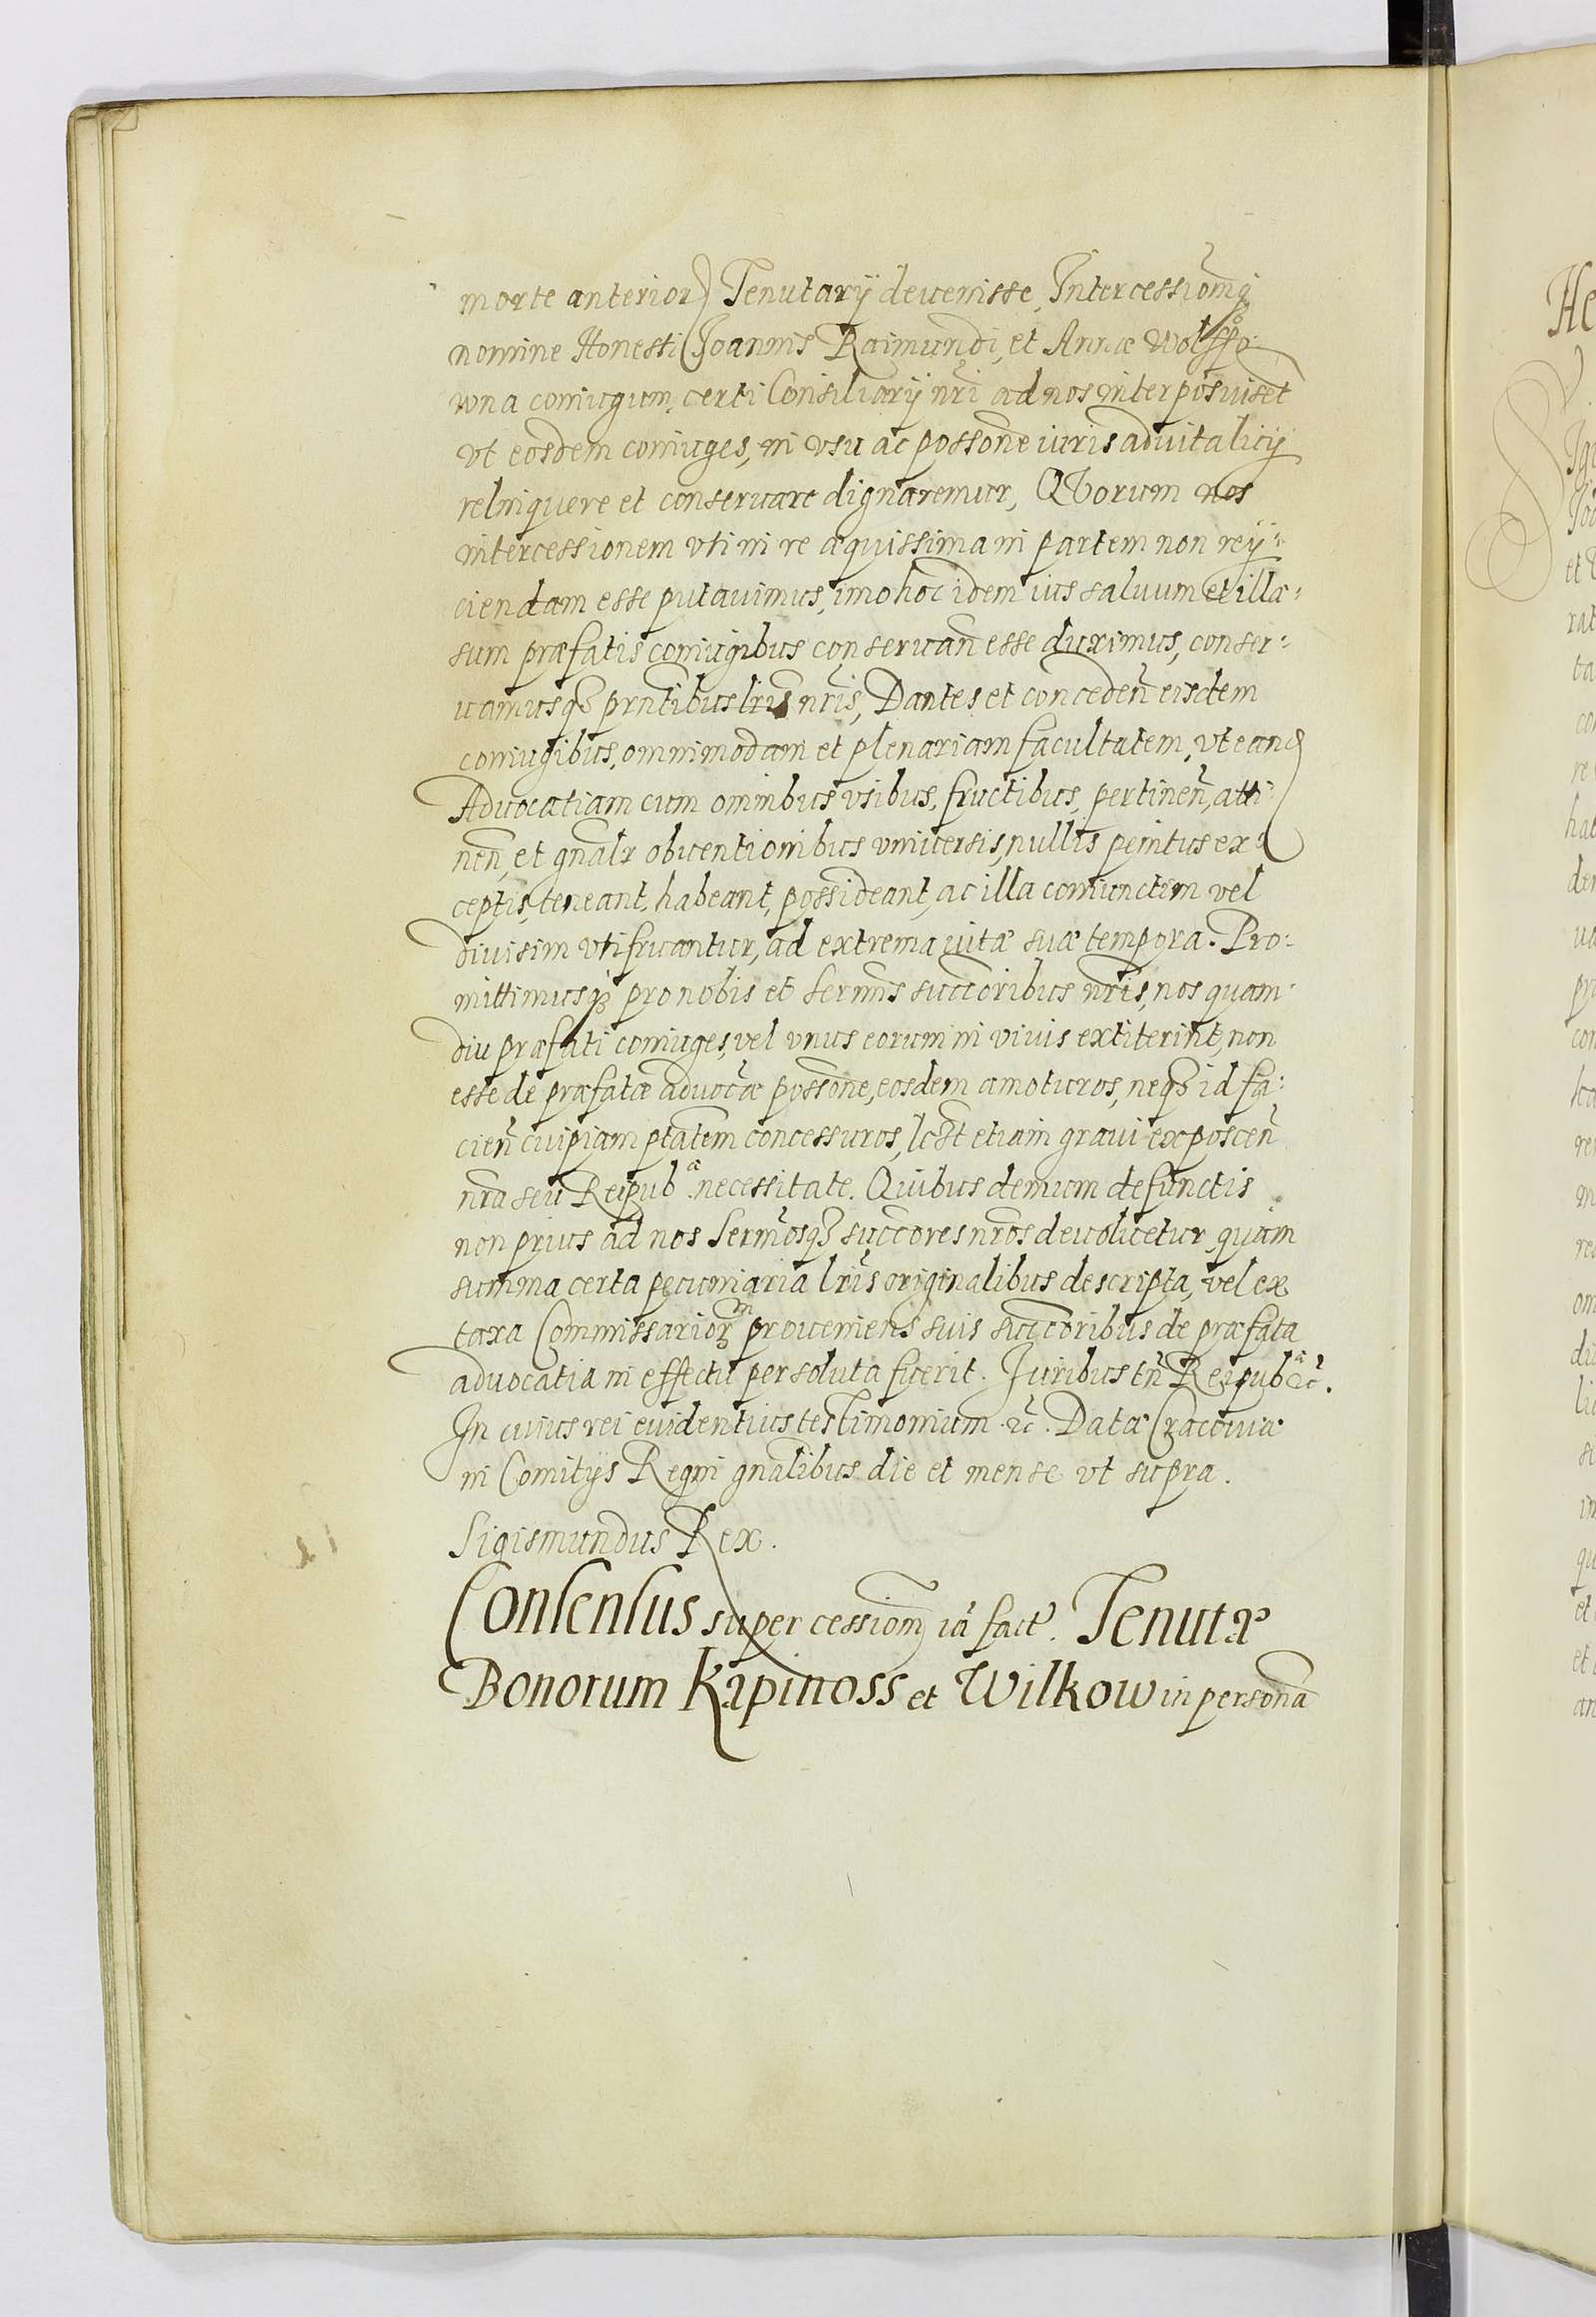 morte anterior Tenutarÿ deuenisse, Intercessionẽqȝ
nomine Honesti Joannis Raimundi, et Annæ Wolffo
wna coniugum, certi Consiliarÿ nr̃i ad nos interposuiset
vt eosdem coniuges, in vsu ac possone iuris aduitalicÿ
relinquere et conseruare dignaremur, QVorum nos
intercessionem vti in re æquissima in partem non reÿ:
ciendam esse putauimus, imo hoc idem ius saluum et illæ:
sum præfatis coniugibus conseruan̄ esse duximus, conser:
uamusqȝ prñtibus lris nris, Dantes et conceden̄ eisdem
coniugibus, omnimodam et plenariam facultatem, vt eand
Aduocatiam cum omnibus vsibus, fructibus, pertinen̄, atti
nen̄, et gnalr obuentionibus vniuersis, nullis penitus ex
ceptis, teneant, habeant, possideant, ac illa coniunctim vel
diuisim vti fruantur, ad extrema vitæ suæ tempora. Pro:
mittimusqȝ pro nobis et Sermis succoribus nris, nos quam
diu præfati coniuges, vel vnus eorum in viuis extiterint, non
esse de præfatæ aduocæ possone, eosdem amoturos, neqȝ id fa:
cien̄ cuipiam ptatem concessuros, lcet etiam graui exposcen̄
nra seu Reipub.ᵃ necessitate. Quibus demum defunctis
non prius ad nos Sermosqȝ succores nros deuoluetur, quàm
summa certa pecuniaria lris originalibus descripta, vel ex
taxa Commissariorᵐ proueniens suis succoribus de præfata
aduocatia in effectu persoluta fuerit. Juribus tn̄ Reipub.ᵃ ꝛc̃.
In cuius rei euidentius testimonium ꝛc̃. Datæ Cracouiæ
in Comitÿs Regni gnalibus die et mense vt supra.
Sigismundus Rex.
Consensus super cessionẽ iã fact. Tenutæ
Bonorum Kapinoss et Wilkow in personã